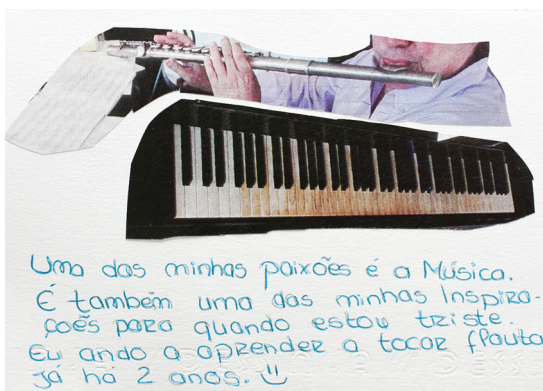 Uma das minhas paixões é a Música.
É também uma das minhas Inspira-
ções para quando estou triste.
Eu ando a aprender a tocar flauta
já há 2 anos. :)